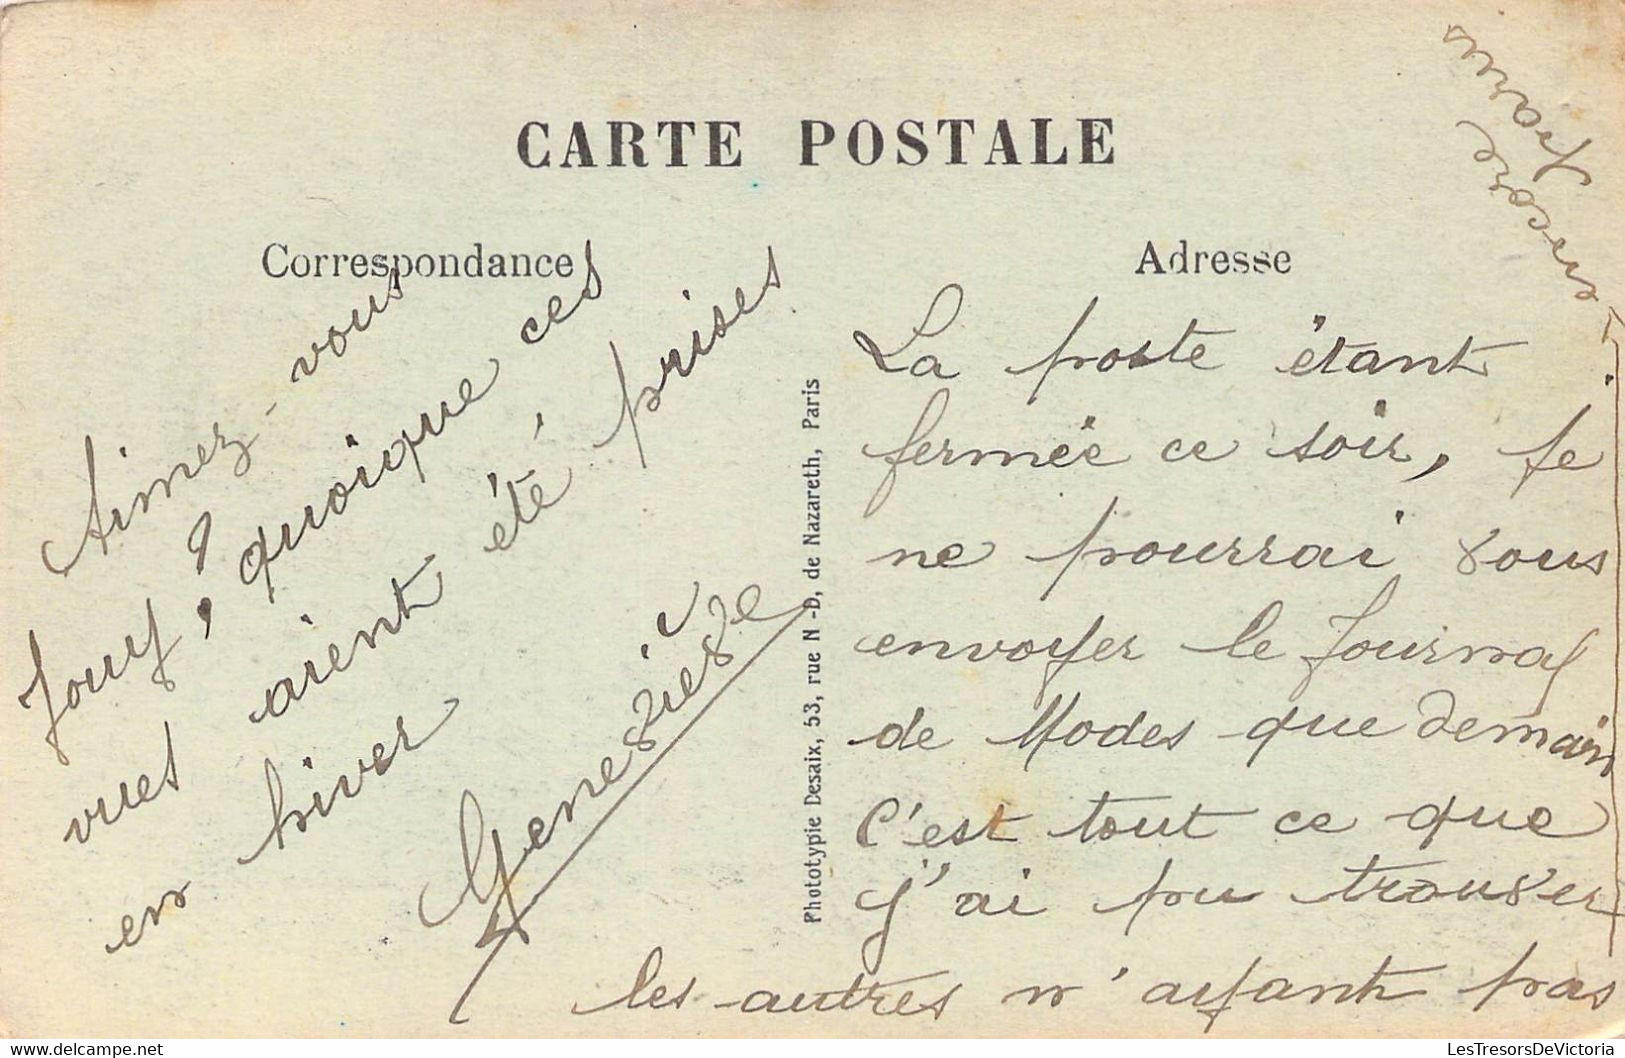 CARTE POSTALE
Correspondance
Aimez-vous
Jouy, quoique ces
vues aient été prises
en hiver
Geneviève
Phototypie Desaix, 53, rue N.-D. de Nazareth, Paris
Adresse
La poste étant
fermée ce soir, je
ne pourrai vous
envoyer le Journal
de Modes que demain
C'est tout ce que
j'ai pu trouver
les autres n'ayant pas
encore
parus
LesTresorsDeVictoria